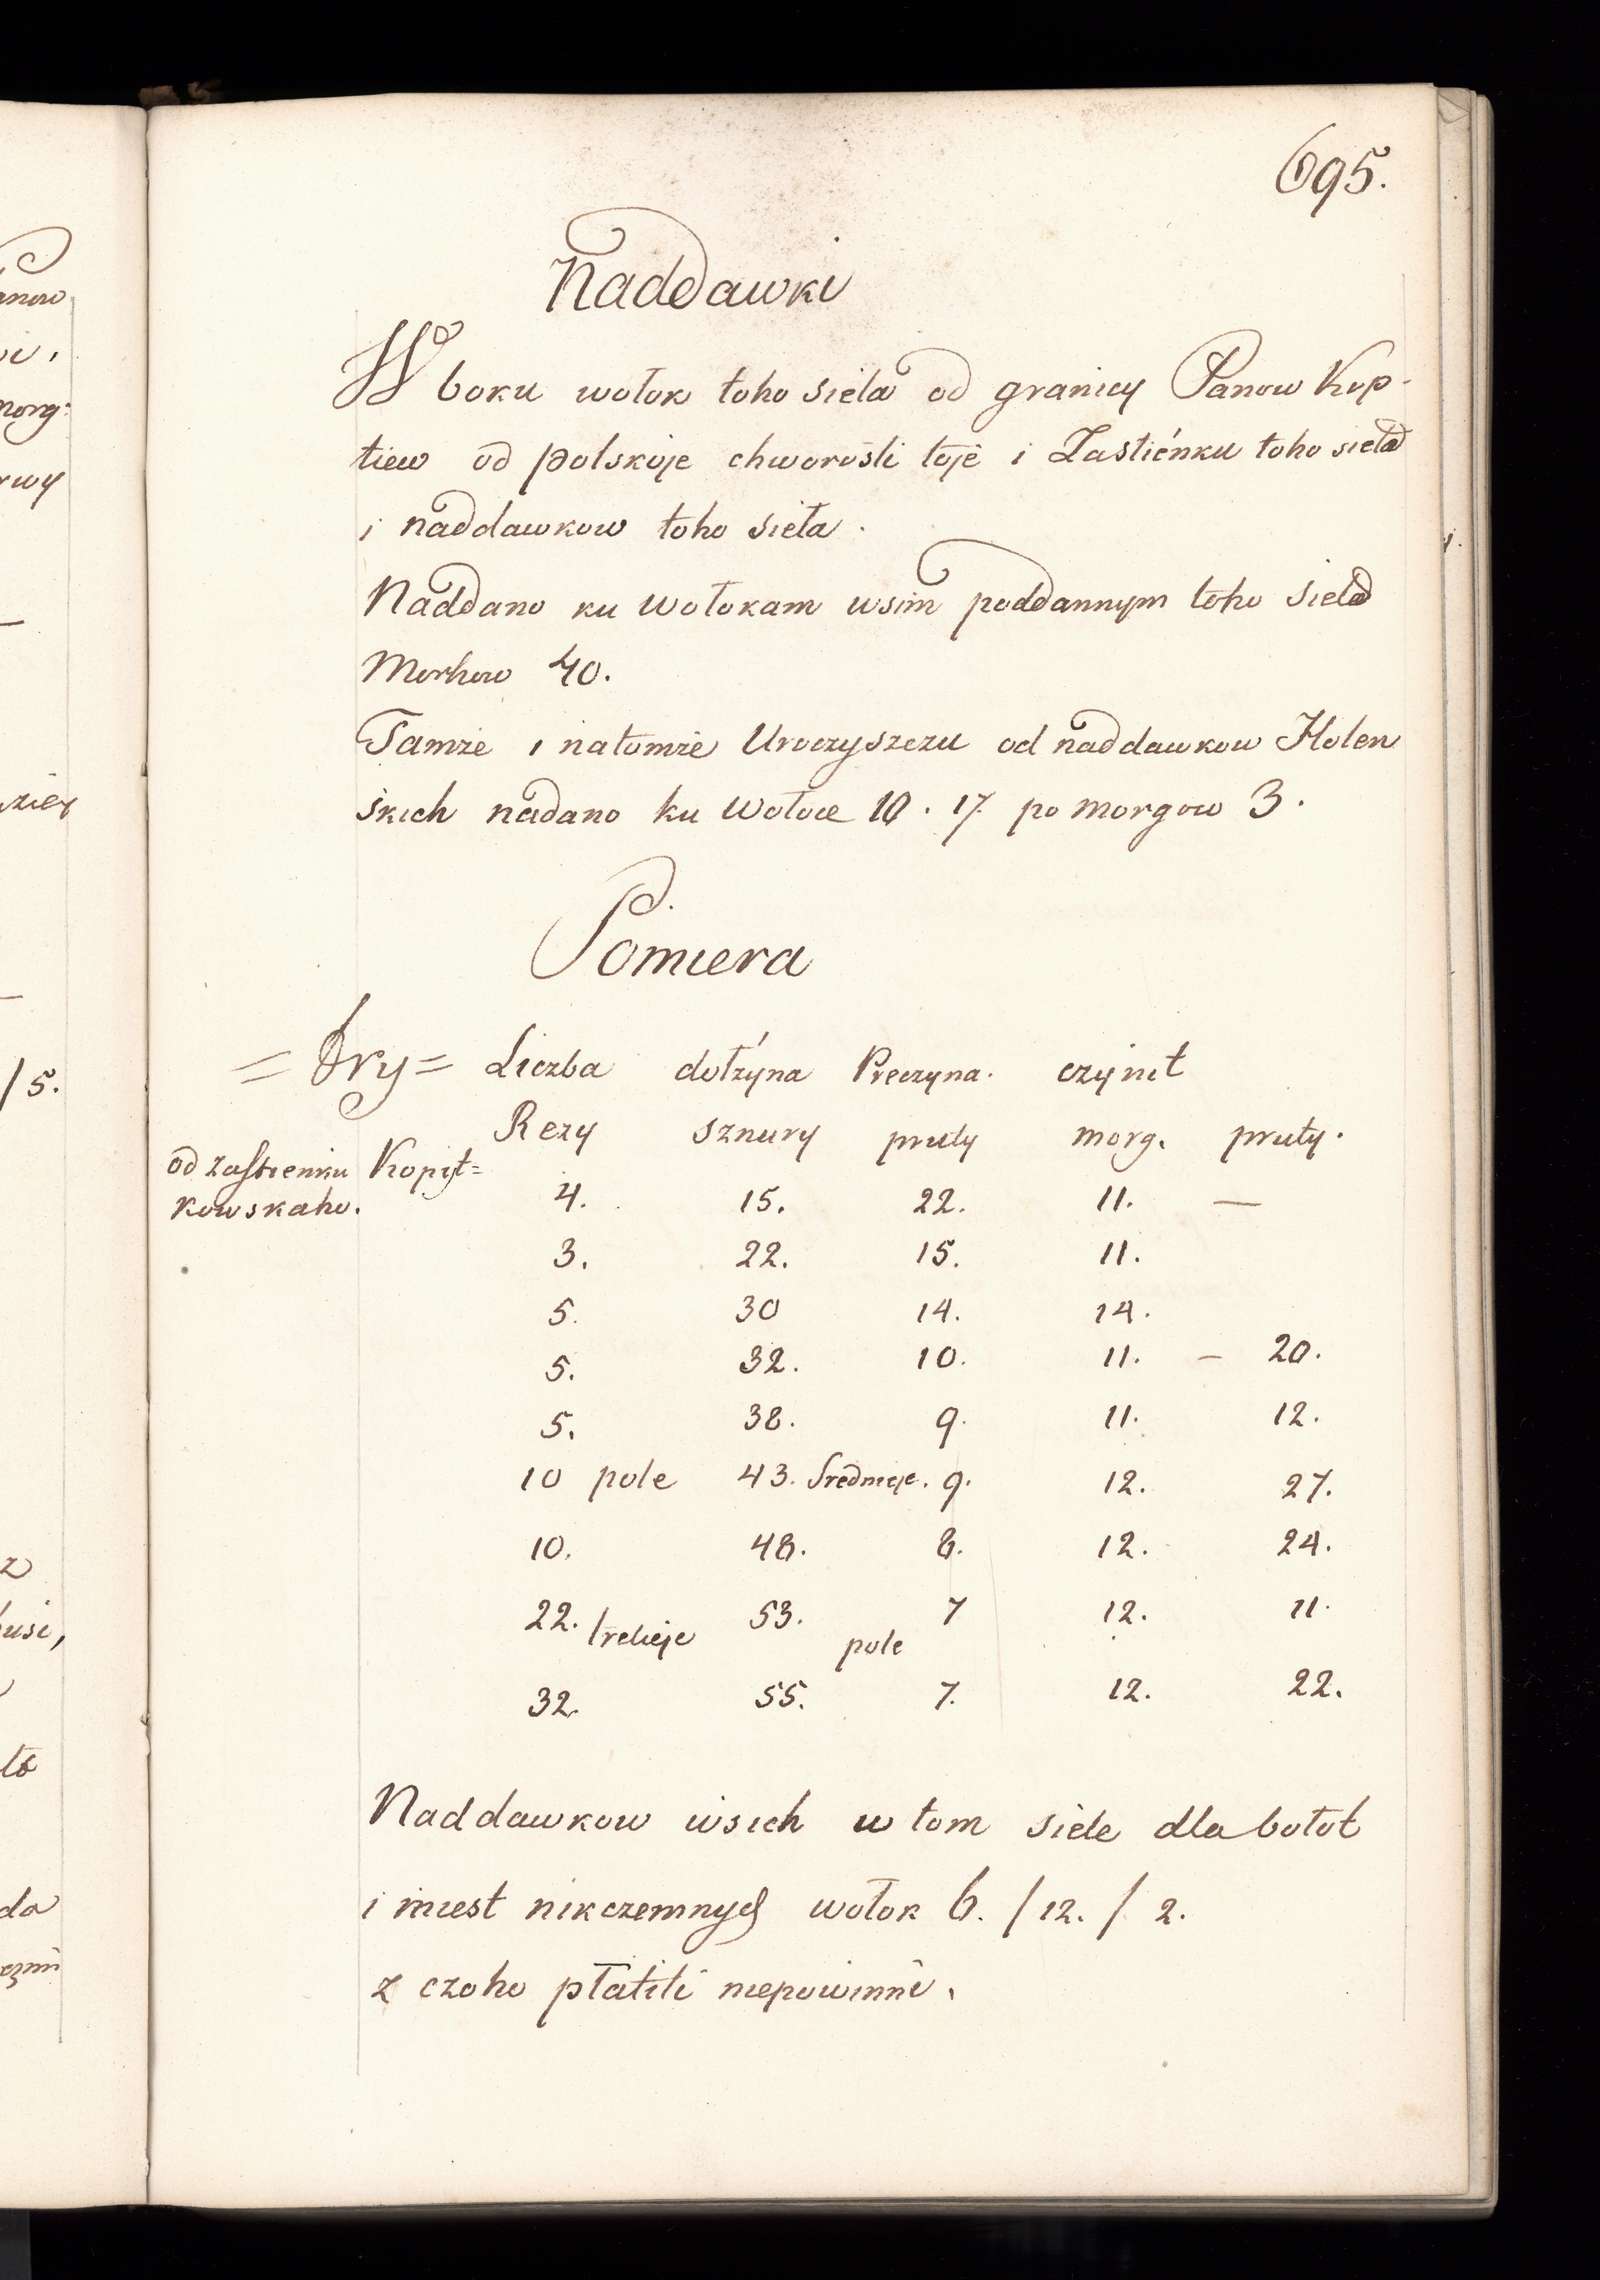 695.
Naddawki
W boku wołok toho sieła od granicy Panow Kop-
tiew od polskoje chworosli tojè i Zastiénku toho sieła
i naddawkow toho sieła.
Naddano ku wołokam wsim poddannym toho sieła
Morhow 40.
Tamże i natomże Uroczyszczu od naddawkow Holen
skich nadano ku Wołoce 10. 17. po morgow 3.
Pomiera
= Ory = Liczba dołżyna Preczyna. czynit
Rezy sznury pruty morg. pruty.
od zastienku Kopyt=
kowskaho. 4. 15. 22. 11. —
3. 22. 15. 11.
5. 30 14. 14.
5. 32. 10. 11. – 20.
5. 38. 9. 11. 12.
10 pole 43. Sredneje. 9. 12. 27.
10. 48. 8. 12. 24.
22. 53. 7 12. 11.
tretieje pole
32. 55. 7. 12. 22.
Naddawkow wsich w tom siele dla bołot
i miest nikczemnych wołok 6. / 12. / 2.
z czoho płatiti niepowinni.